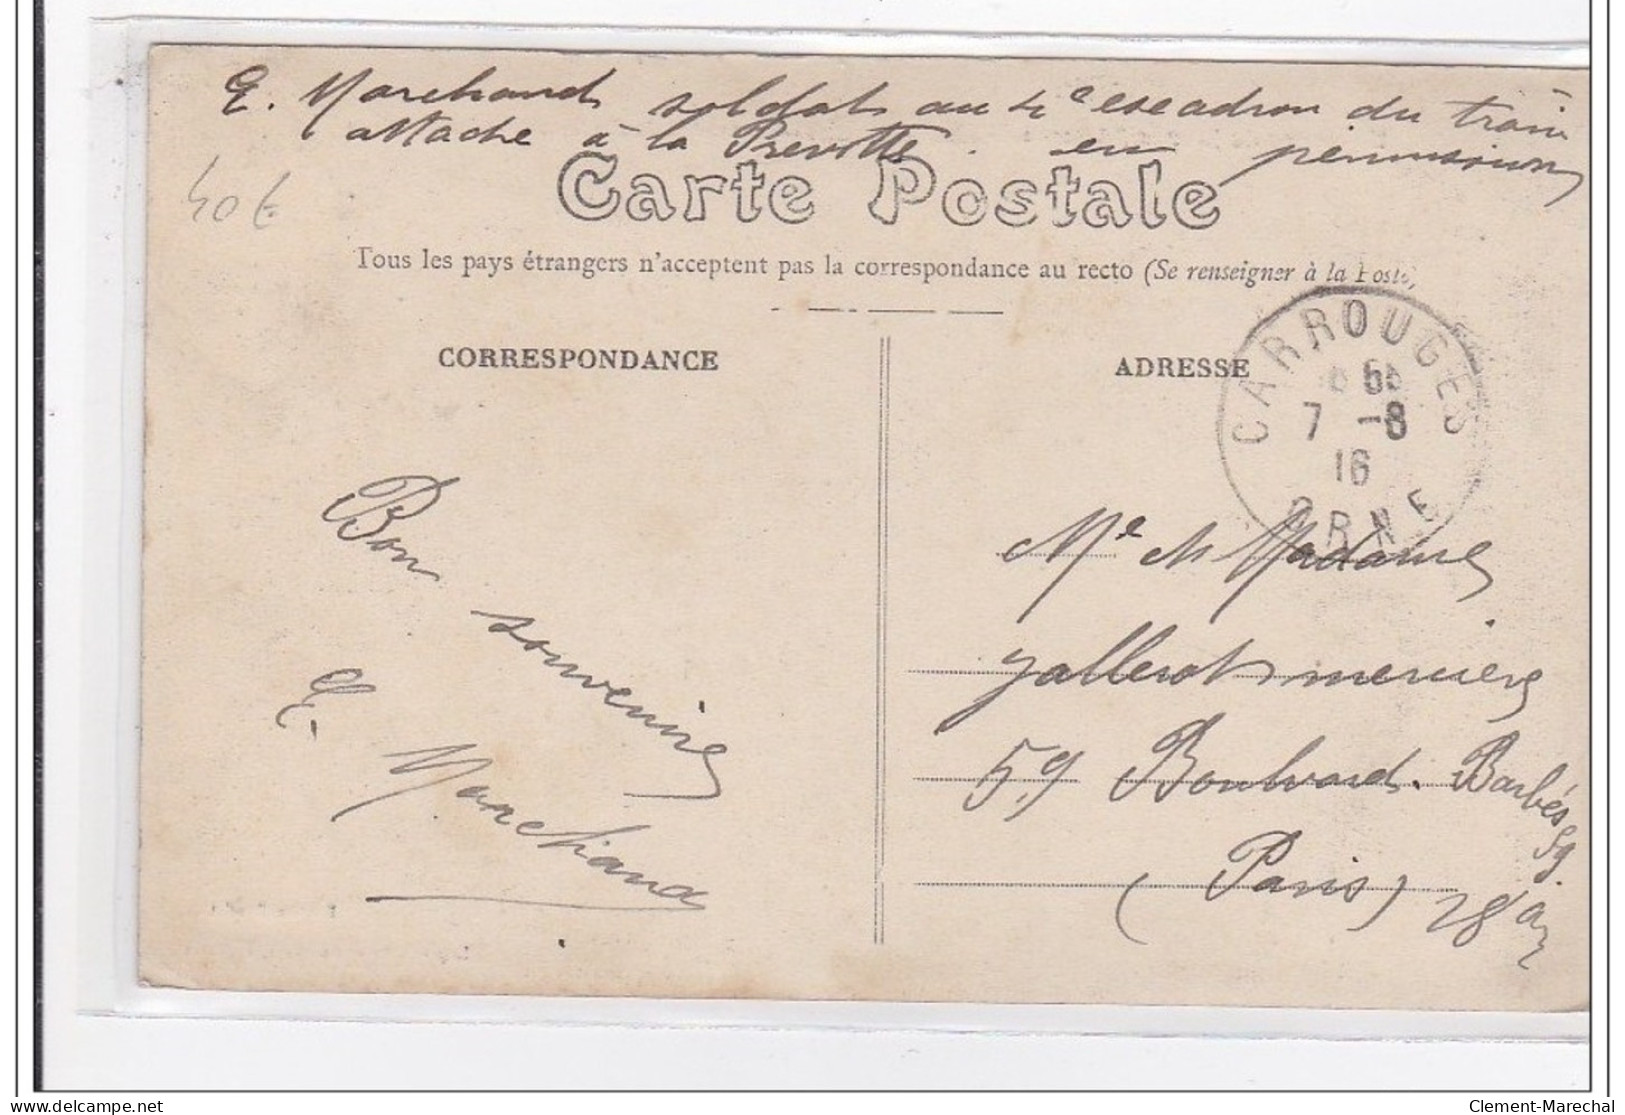 E. Marchand soldat au 4e escadron du train
attaché à la Prevotté. en permission
40 €
Carte Postale
Tous les pays étrangers n'acceptent pas la correspondance au recto (Se renseigner à la Poste)
CORRESPONDANCE
ADRESSE
CARROUGES
7 -8
16
ORNE
Bon souvenir
E. Marchand
Me et Madame
Gallerot mercière
59 Boulvard. Barbés 59.
(Paris) 18 ar
delcampe.net
Clement-Marechal